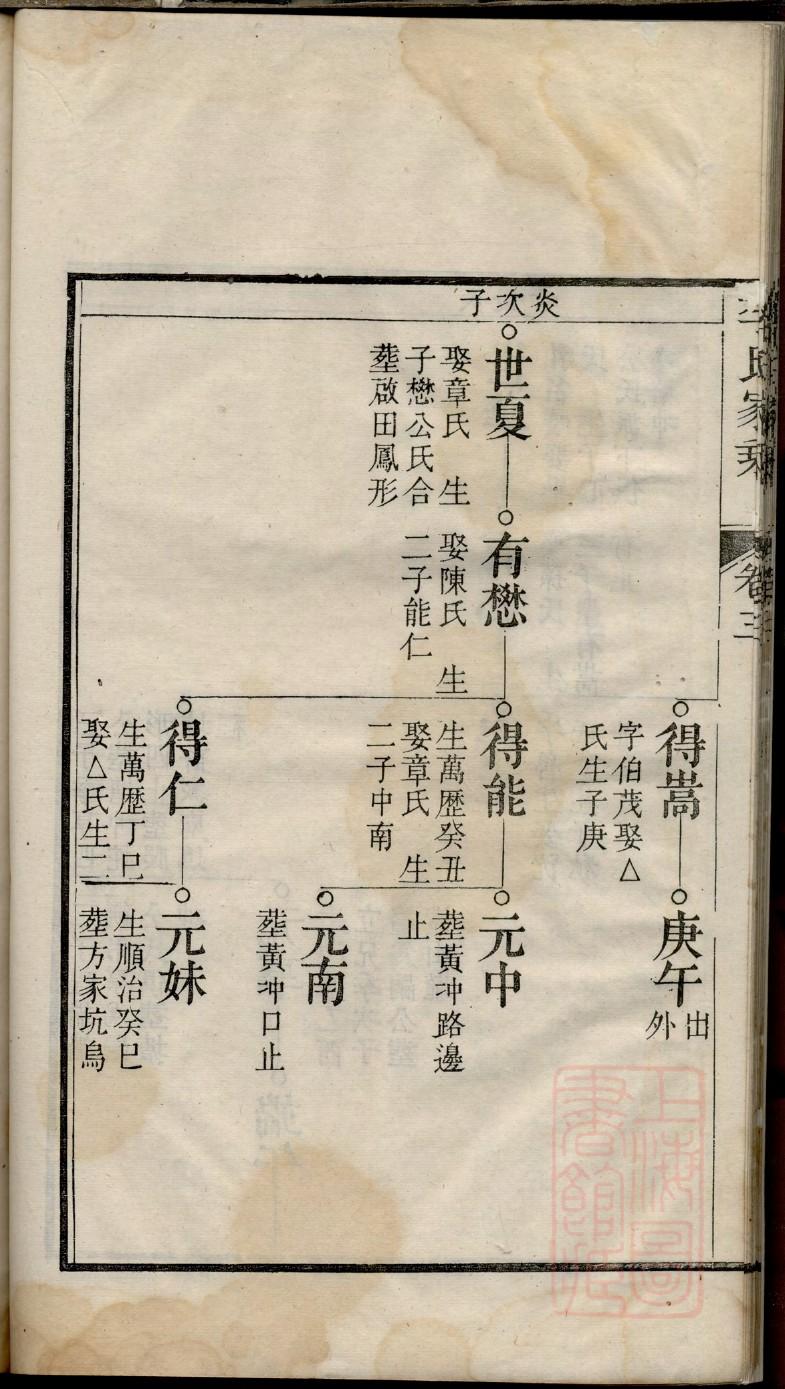 李氏家乘
卷三
炎次子
世夏
娶章氏 生
子懋公氏合
塟啟田鳳形
有懋
娶陳氏 生
二子能仁
得嵩
字伯茂娶△
氏生子庚
得能
生萬歷癸丑
娶章氏 生
二子中南
得仁
生萬歷丁巳
娶△氏生二
庚午
出
外
元中
塟黃冲路邊
止
元南
塟黃冲口止
元妹
生順治癸巳
塟方家坑烏
上海圖
書館藏